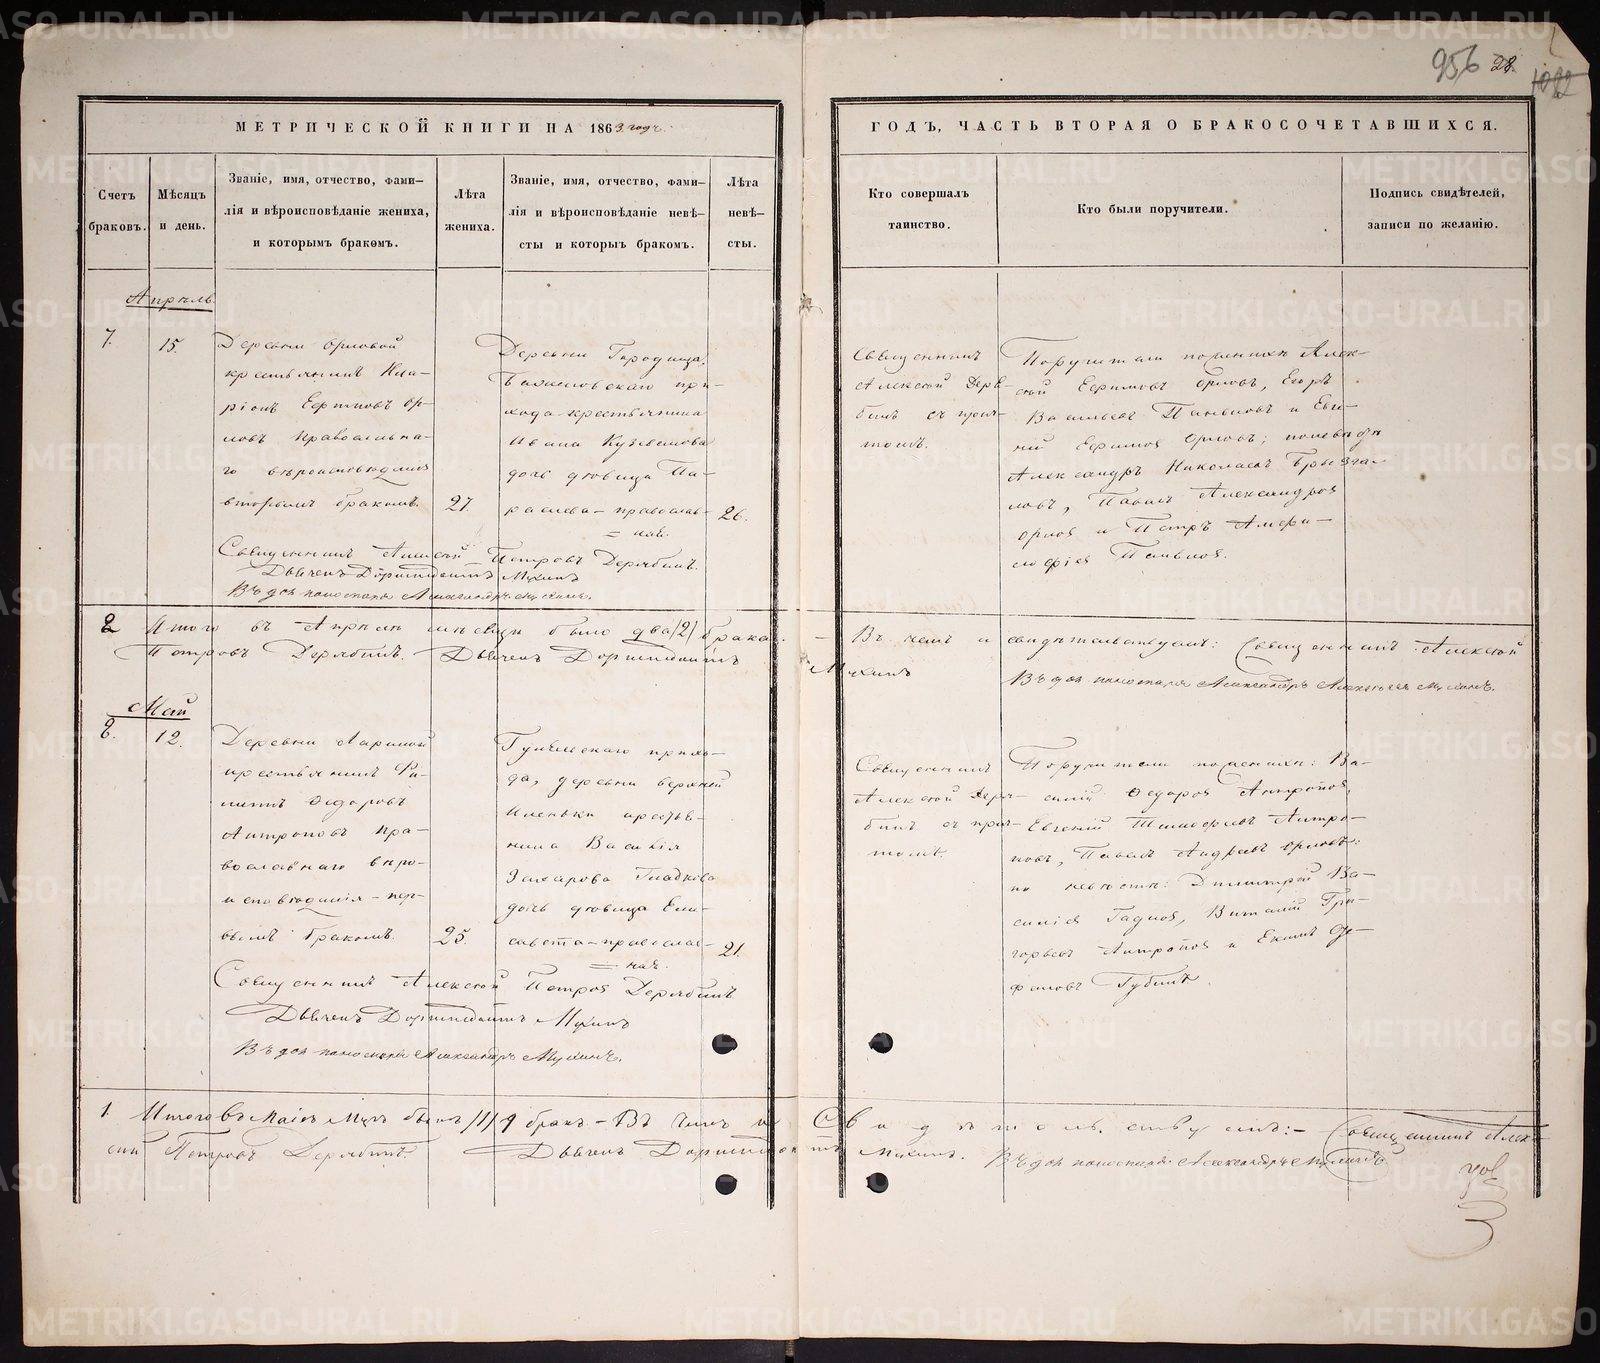 956 28. 1082
МЕТРИЧЕСКОЙ КНИГИ НА 1863 годъ.
ГОДЪ, ЧАСТЬ ВТОРАЯ О БРАКОСОЧЕТАВШИХСЯ.
Счетъ браковъ.
Мѣсяцъ и день.
Званіе, имя, отчество, фами-
лія и вѣроисповѣданіе жениха,
и которымъ бракомъ.
Лѣта
жениха.
Званіе, имя, отчество, фами-
лія и вѣроисповѣданіе невѣ-
сты и которыъ бракомъ.
Лѣта
невѣ-
сты.
Кто совершалъ
таинство.
Кто были поручители.
Подпись свидѣтелей,
записи по желанію.
Апрѣль
7.
15.
Деревни Орловой
крестьянинъ Ила-
ріонъ Ефимовъ Ор-
ловъ православна-
го вѣроисповѣданія
вторымъ бракомъ.
27
Деревни Городища,
прихода крестьянина
Ивана
дочь дѣвица Па-
раскева - православ-
ная.
26.
Священникъ
Алексѣй Деря-
бинъ съ прич-
томъ.
Поручители по женихѣ Алек-
сѣй Ефимовъ Орловъ, Егоръ
Васильевъ и Евге-
ній Ефимов Орловъ; по невѣстѣ
Александръ Николаевъ
ловъ, Павелъ Александров
Орлов и Петръ
Священникъ Алексѣй Петровъ Дерябинъ.
Дьяченъ Доримедонтъ Мухинъ
Въ дол. пономаря Александръ Мухинъ.
2 Итого въ Апрѣлѣ мѣсяцѣ было два /2/ брака. - Въ чемъ и свидѣтельствуемъ: Священникъ Алексѣй
Петровъ Дерябинъ. Дьяченъ Доримедонтъ Мухинъ Въ дол. пономаря Александръ Алексѣевъ Мухинъ.
Май
8.
12.
Деревни Лариной
крестьянинъ Фи-
липпъ Ѳедоровъ
Антроповъ пра-
вославнаго вѣро-
исповѣданія - пер-
вымъ бракомъ.
25.
прихо-
да, деревни Верхней
крестья-
нина Василія
Захарова Гладкова
дочь дѣвица Ели-
савета - православ-
ная.
21.
Священникъ
Алексѣй Деря-
бинъ съ прич-
томъ.
Поручители по женихѣ: Ва-
силій Ѳедоров Антропов,
Евгеній Тимоѳеевъ Антро-
повъ, Павелъ Андреевъ Орловъ:
по невѣстѣ: Димитрій Ва-
силіев Гладков, Виталій Гри-
горьев Антропов и Екимъ
Губинъ.
Священникъ Алексѣй Петров Дерябинъ
Дьяченъ Доримедонтъ Мухинъ
Въ дол. пономаря Александръ Мухинъ.
1. Итого въ Маіѣ м-цѣ былъ /1/ 1 бракъ - Въ чемъ и свидѣтельствуемъ: - Священникъ Алек-
сѣй Петровъ Дерябинъ. Дьяченъ Доримедонтъ Мухинъ. Въ дол. пономаря Александръ Мухинъ
METRIKI.GASO-URAL.RU